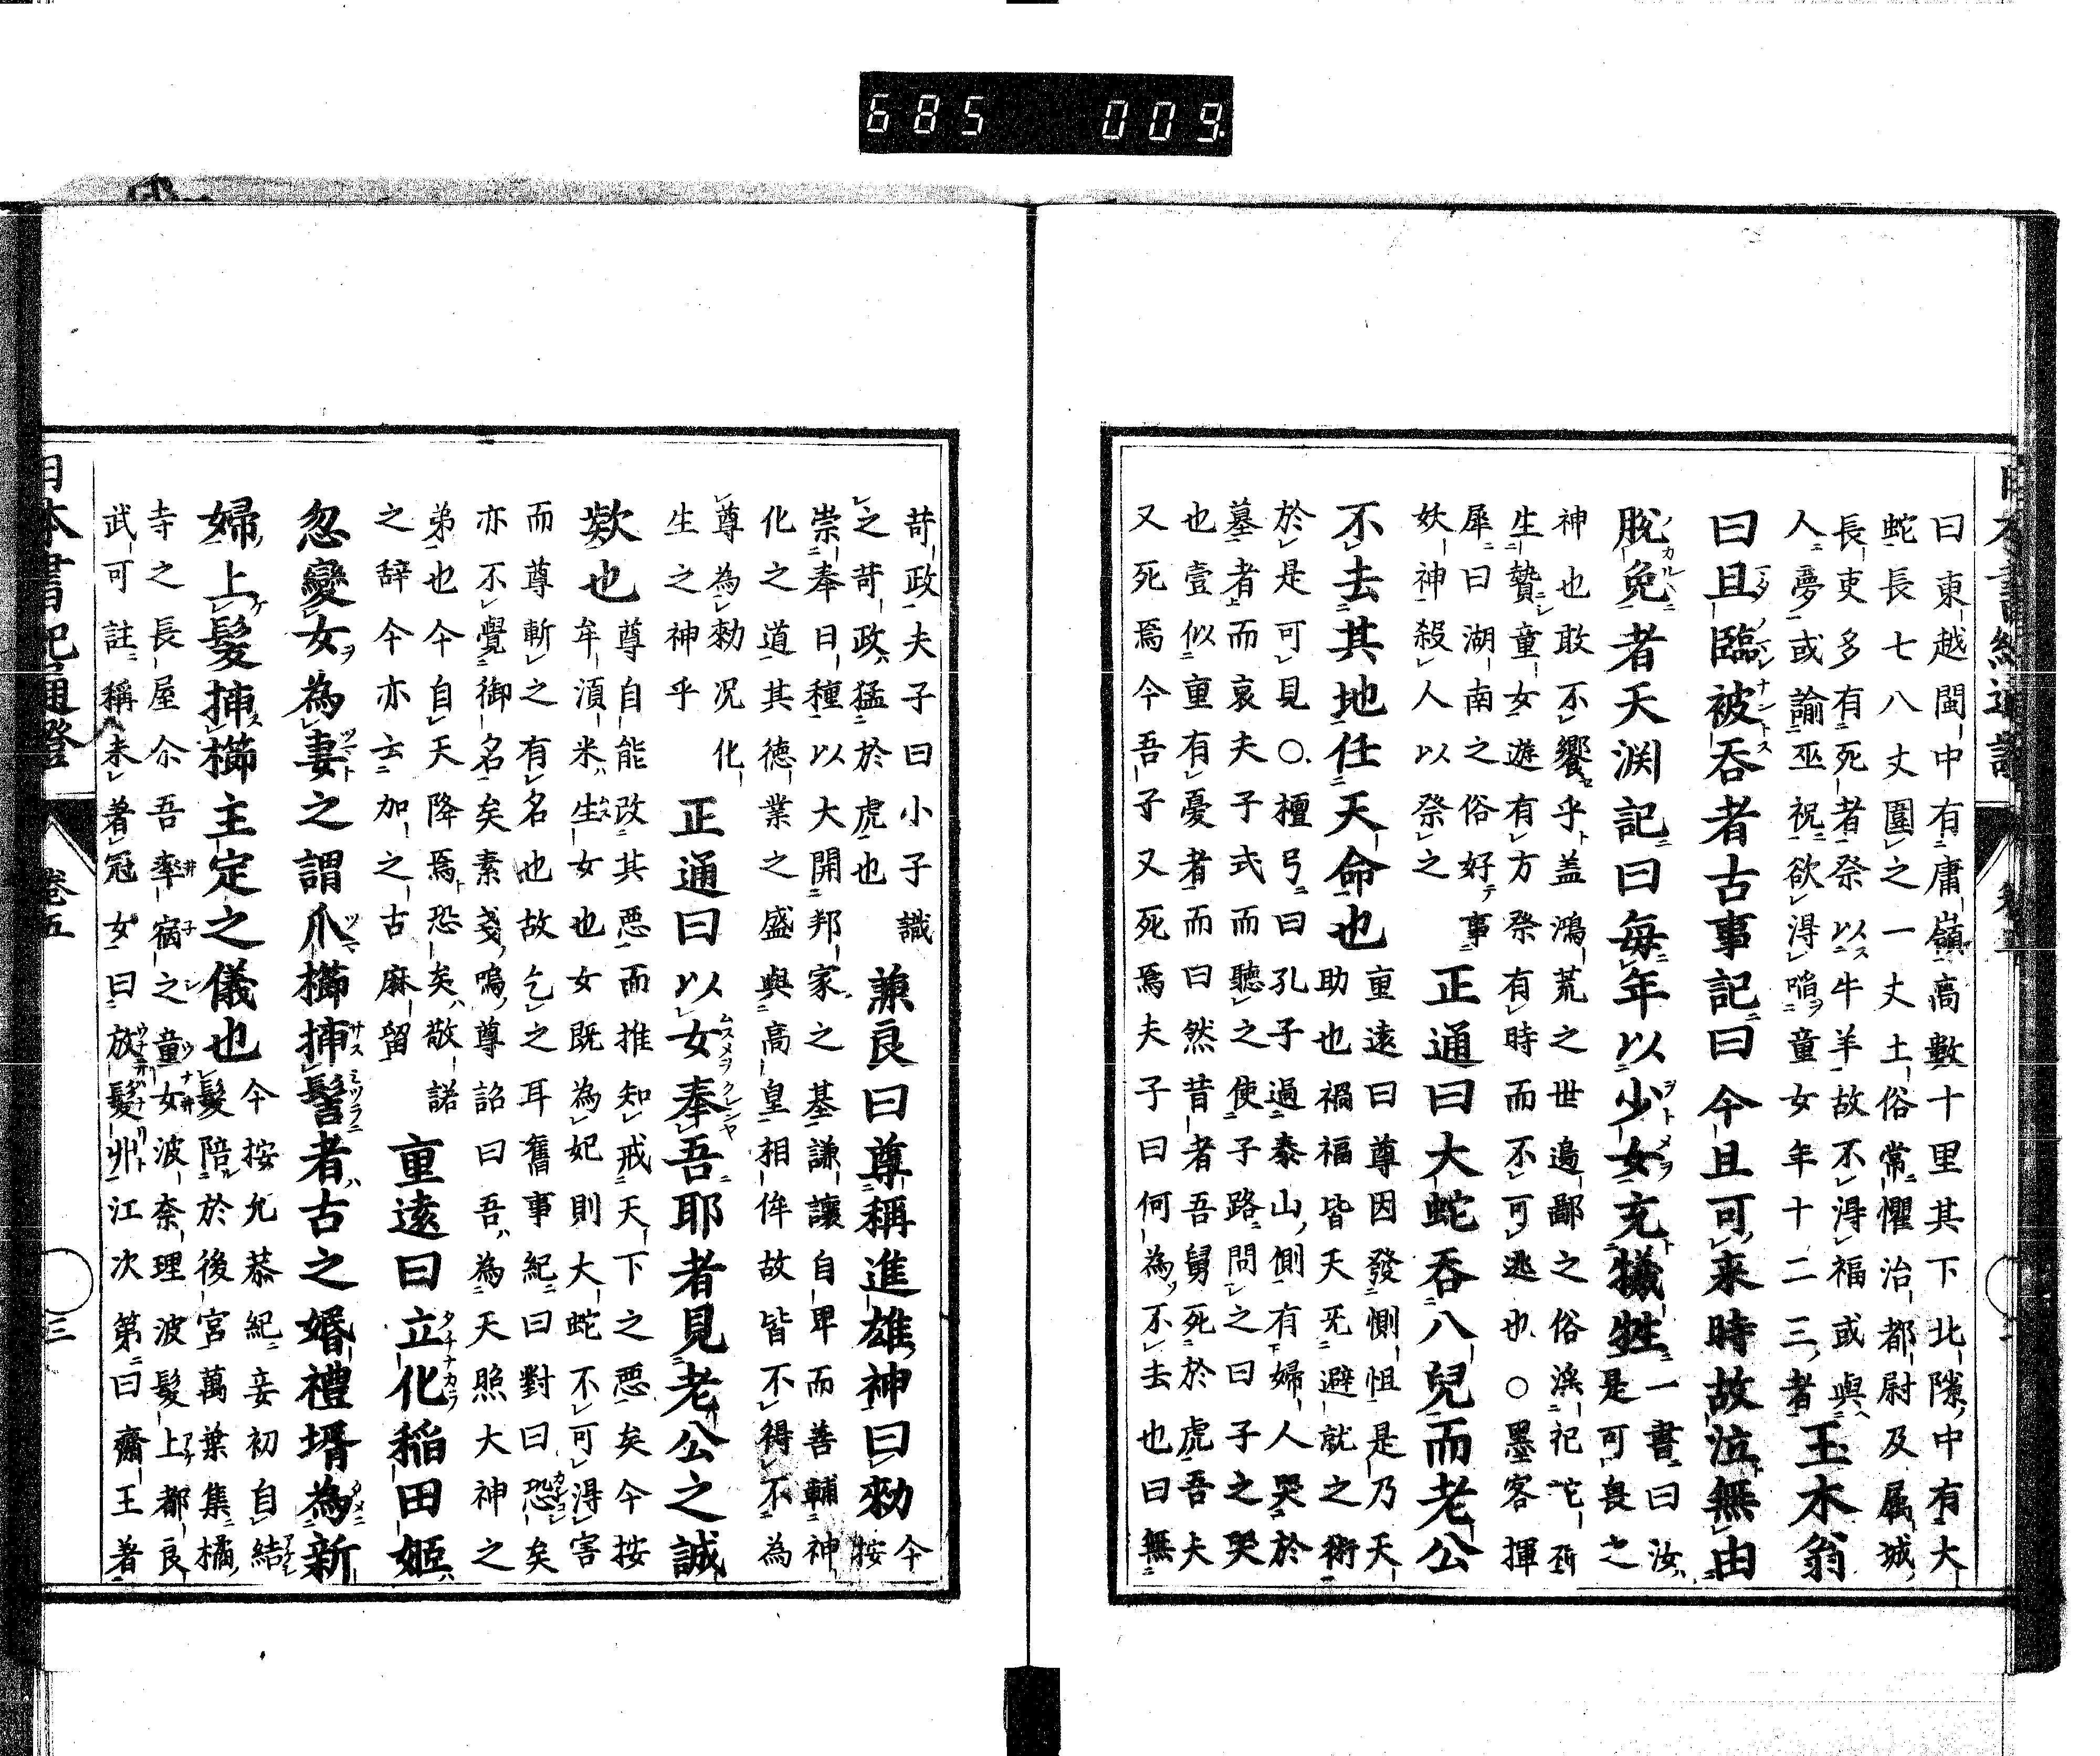 685 009
曰東越閩中有庸嶺高數十里其下北隙中有大
蛇長七八丈圍之一丈土俗常懼治都尉及属城
長吏多有死者祭以牛羊故不得福或與
人夢或諭巫祝欲得啗童女年十二三者
玉木翁
曰且臨被呑者古事記曰今且可来時故泣無由
脱免者天渕記曰毎年以少女充犠牲
一書曰汝
是可畏之
神也敢不饗乎盖鴻荒之世邉鄙之俗淫祀
生贄童女遊有方祭有時而不可逃也○墨客揮
犀曰湖南之俗好事
妖神殺人以祭之
正通曰大蛇呑八兒而老公
不去其地任天命也
重遠曰尊因發惻怛是乃天
助也禍福皆天旡避就之術
於是可見○檀弓曰孔子過泰山側有婦人哭於
墓者而哀夫子式而聽之使子路問之曰子之哭
也壹似重有憂者而曰然昔者吾舅死於虎吾夫
又死焉今吾子又死焉夫子曰何為不去也曰無
苛政夫子曰小子識
之苛政猛於虎也
兼良曰尊稱進雄神曰勑
今
按
崇奉日種以大開邦家之基謙讓自卑而善輔神
化之道其德業之盛與高皇相侔故皆不得不為
尊為勑况化
生之神乎
正通曰以女奉吾耶者見老公之誠
欵也
尊自能改其惡而推知戒天下之惡矣今按
牟湏米生女也女既為妃則大蛇不可得害
而尊斬之有名也故乞之耳舊事紀曰對曰恐矣
亦不覺御名矣素戔嗚尊詔曰吾為天照大神之
弟也今自天降焉恐矣敬諾
之辞今亦云加之古麻留
重遠曰立化稲田姫
忽變女為妻之謂爪櫛挿髻者古之婚禮壻為新
婦上髮挿櫛主定之儀也
今按允恭紀妾初自結
髮陪於後宮萬葉集橘
寺之長屋尒吾率宿之童女波奈理波髮上都良
武可註稱未著冠女曰放髮丱江次第曰齋王著
日本書紀通證
卷五
三